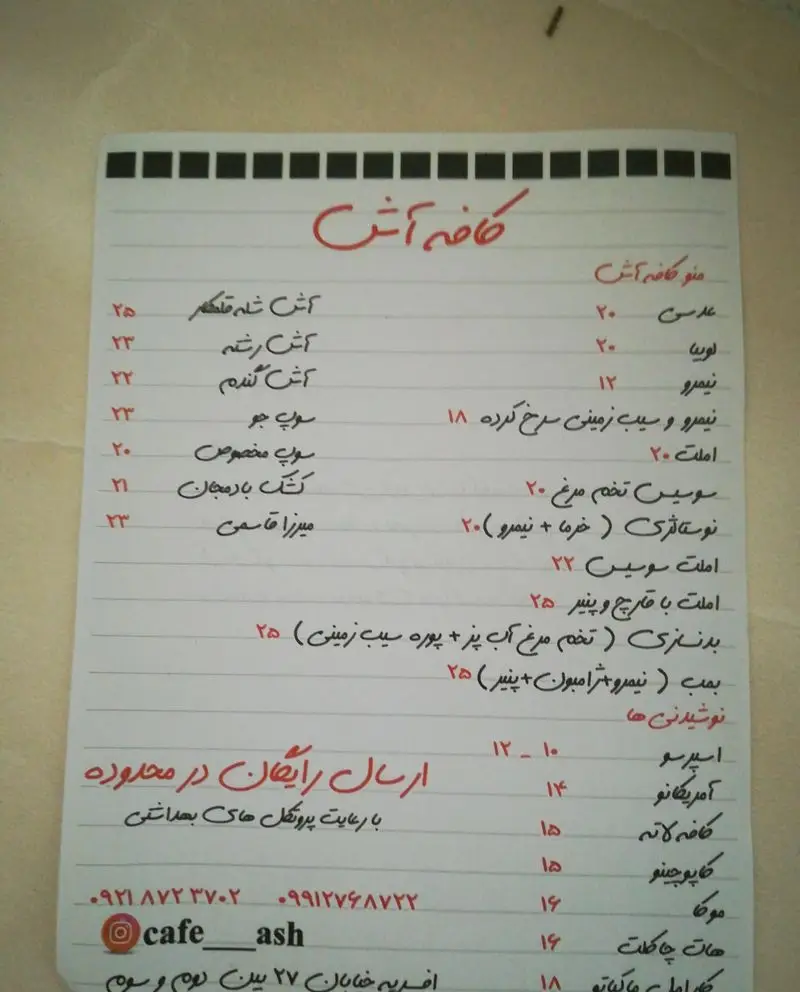 کافه آش
منو کافه آش
عدسی ۲۰
لوبیا ۲۰
نیمرو ۱۲
نیمرو و سیب زمینی سرخ کرده ۱۸
املت ۲۰
سوسیس تخم مرغ ۲۰
نوستالژی ( خرما + نیمرو ) ۲۰
املت سوسیس ۲۲
املت با قارچ و پنیر ۲۵
بدنسازی ( تخم مرغ آب پز + پوره سیب زمینی ) ۲۵
بمب ( نیمرو+ژامبون+پنیر ) ۲۵
آش شله قلمکار ۲۵
آش رشته ۲۳
آش گندم ۲۲
سوپ جو ۲۳
سوپ مخصوص ۲۰
کشک بادمجان ۲۱
میرزا قاسمی ۲۳
نوشیدنی ها
اسپرسو ۱۰ _ ۱۲
آمریکانو ۱۴
کافه لاته ۱۵
کاپوچینو ۱۵
موکا ۱۶
هات چاکلت ۱۶
کارامل ماکیاتو ۱۸
ارسال رایگان در محدوده
با رعایت پروتکل های بهداشتی
۰۹۲۱۸۷۲۳۷۰۲ ۰۹۹۱۲۷۶۸۷۲۲
cafe___ash
افسریه خیابان ۲۷ بین دوم و سوم